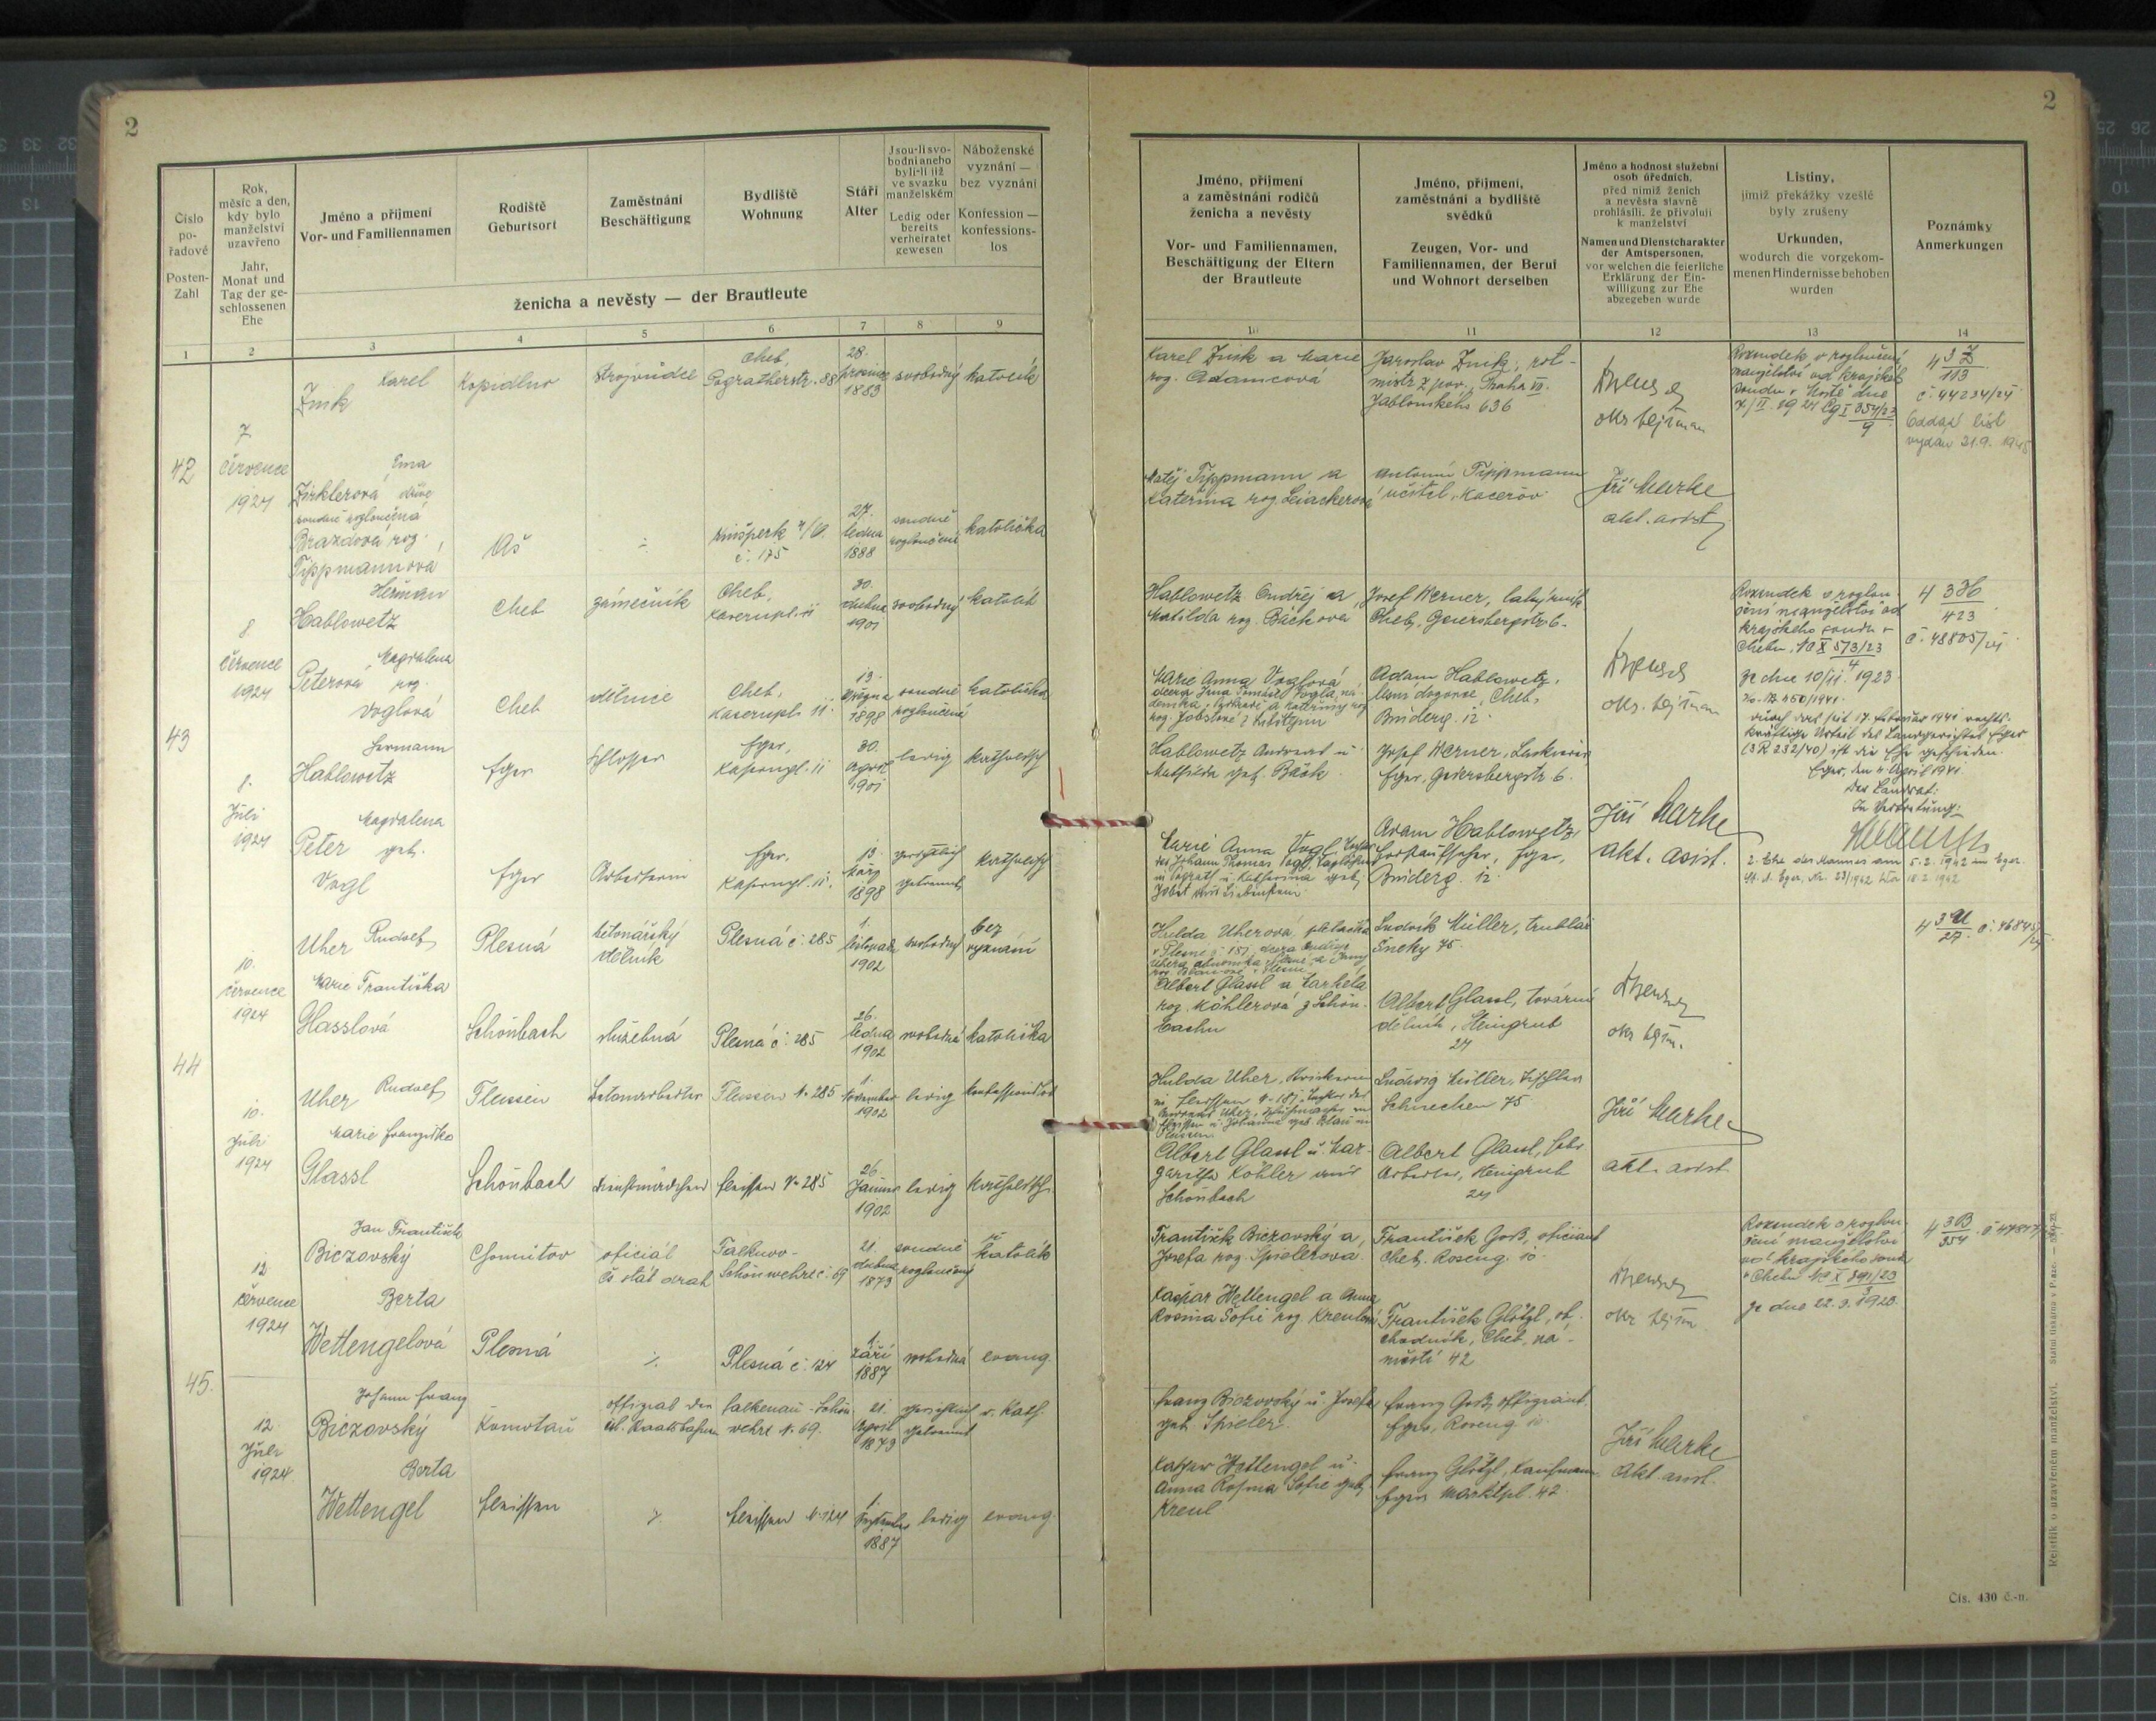 2
Číslo
po-
řadové
Posten-
Zahl
Rok,
měsíc a den,
kdy bylo
manželství
uzavřeno
Jahr,
Monat und
Tag der ge-
schlossenen
Ehe
Jméno a příjmení
Vor- und Familiennamen
Rodiště
Geburtsort
Zaměstnání
Beschäftigung
Bydliště
Wohnung
Stáří
Alter
Jsou-li svo-
bodni anebo
byli-li již
ve svazku
manželském
Ledig oder
bereits
verheiratet
gewesen
Náboženské
vyznání —
bez vyznání
Konfession —
konfessions-
los
ženicha a nevěsty — der Brautleute
1 2 3 4 5 6 7 8 9
42
7.
července
1924
Karel
Zink
Kopidlno
strojvůdce
Cheb,
Pogratherstr. 88
28.
prosince
1883
svobodný
katolík
Ema
Zirklerová dříve
soudně rozloučená
Brazdová roz.
Tippmannová
Aš
Kinšperk n/O.
č. 175
27.
ledna
1888
soudně
rozloučená
katolička
43
8
července
1924
Heřman
Hablowetz
Cheb
zámečník
Cheb,
Kasernpl. 11
30.
dubna
1901
svobodný
katolík
Magdalena
Peterová roz.
Voglová
Cheb
dělnice
Cheb,
Kasernpl. 11
13.
března
1898
soudně
rozloučená
katolička
8.
Juli
1924
Hermann
Hablowetz
Eger
Schlosser
Eger,
Kasernpl. 11
30.
April
1901
ledig
katholisch
Magdalena
Peter geb.
Vogl
Eger
Arbeiterin
Eger,
Kasernpl. 11.
13.
März
1898
gerichtlich
getrennt
katholisch
44
10.
července
1924
Rudolf
Uher
Plesná
betonářský
dělník
Plesná č. 285
1.
listopadu
1902
svobodný
bez
vyznání
Marie Františka
Glasslová
Schönbach
služebná
Plesná č. 285
26.
ledna
1902
svobodná
katolička
10.
Juli
1924
Rudolf
Uher
Fleissen
Betonarbeiter
Fleissen N. 285
1.
November
1902
ledig
konfessionslos
Marie Franziska
Glassl
Schönbach
Dienstmädchen
Fleissen N. 285
26.
Januar
1902
ledig
katholisch
45.
12.
července
1924
Jan František
Biczovský
Chomutov
oficiál
čs stát drah
Falknov-
Schönwehr č. 69
21.
dubna
1873
soudně
rozloučený
katolík
Berta
Wettengelová
Plesná
Plesná č. 124
1.
září
1887
svobodná
evang.
12
Juli
1924.
Johann Franz
Biczovský
Komotau
Offizial der
čsl. Staatsbahnen
Falkenau-Schön-
wehr N. 69.
21.
April
1873
gerichtlich
getrennt
r. kath.
Berta
Wettengel
Fleissen
Fleissen N. 124
1.
September
1887
ledig
evang.
2
Jméno, příjmení
a zaměstnání rodičů
ženicha a nevěsty
Vor- und Familiennamen,
Beschäftigung der Eltern
der Brautleute
Jméno, příjmení,
zaměstnání a bydliště
svědků
Zeugen, Vor- und
Familiennamen, der Beruf
und Wohnort derselben
Jméno a hodnost služební
osob úředních,
před nimiž ženich
a nevěsta slavně
prohlásili, že přivolují
k manželství
Namen und Dienstcharakter
der Amtspersonen,
vor welchen die feierliche
Erklärung der Ein-
willigung zur Ehe
abgegeben wurde
Listiny,
jimiž překážky vzešlé
byly zrušeny
Urkunden,
wodurch die vorgekom-
menen Hindernisse behoben
wurden
Poznámky
Anmerkungen
10 11 12 13 14
Karel Zink a Marie
roz. Adamcová
Jaroslav Zink, rot-
mistr z pov., Praha VII.
Jablonského 636
okr. hejtman
Rozsudek o rozloučení
manželství od krajského
soudu v Mostě dne
4 3 Z
113
č. 44234/24
Oddací list
vydán 21.9. 1945
Matěj Tippmann a
Kateřina roz. Leiackerová
Antonín Tippmann
učitel, Kacerov
Jiří Marke
akt. asist.
Hablowetz Ondřej a
Matilda roz. Bäckova
Josef Werner,
Cheb, Geiersbergstr. 6.
okr. hejtman
Rozsudek o rozlou-
čení manželství od
krajského soudu v
Chebu, Nc X 573/23
4
ze dne 10/11. 1923
4 3 H
423
č. 48805/24
Marie Anna Voglová,
dcera Jana Tomáše Vogla,
Adam Hablowetz,
lesní dozorce, Cheb,
Brüderg. 12.
durch das seit 17. Februar 1941 rechts-
kräftige Urteil des Landgerichtes Eger
(3 R 232/40) ist die Ehe geschieden.
Eger, den 4. April 1941
Der Landrat:
In Vertretung:
Hablowetz Andreas u.
Mathilda geb. Bäck
Josef Werner, Lackierer
Eger, Geiersbergstr. 6.
Marie Anna Vogl, Tochter
des Johann Thomas Vogl, Taglöhner
in Pograth u. Katharina geb.
Jobst aus Liebenstein
Adam Hablowetz
Forstaufseher, Eger,
Brüderg. 12.
Jiří Marke
akt. asist.
2. Ehe des Mannes am 5.2.1942 in Eger.
St. A. Eger, Nr. 23/1942 18.2.1942
Hulda Uherová,
Ludvík Müller, truhlář
Šneky 75.
4 3 U
27. č. 46845/24
Albert Glassl a Markéta
roz. Köhlerová z Schön-
bachu
Albert Glassl, tovární
dělník, Steingrub
24
okr. hejtm.
Hulda Uher,
Ludwig Müller, Tischler
Schnecken 75
Jiří Marke
Albert Glassl u. Mar-
garetha Köhler aus
Schönbach
Albert Glassl, Fabr.
Arbeiter, Steingrub
24
akt. asist.
František Biczovský a
Josefa roz. Spielerova
František Goß, oficiant
Cheb, Roseng. 10
Rozsudek o rozlou-
čení manželství
od krajského soudu
v Chebu
ze dne 22. 9. 1923.
4 3 B
354
Kašpar Wettengel a Anna
Rosina Sofie roz. Kreulová
František Glötzl, ob-
chodník, Cheb, ná-
městí 42
okr. hejtm
Franz Biczovský u. Josefa
geb. Spieler.
Franz Goß, Offiziant.
Eger, Roseng. 10
Jiří Marke
Akt. asist.
Kaspar Wettengel u.
Anna Rosina Sofie geb.
Kreul
Franz Glötzl, Kaufmann
Eger Marktpl. 42.
Rejstřík o uzavřeném manželství. Státní tiskárna v Praze.
Čís. 430 č.-n.